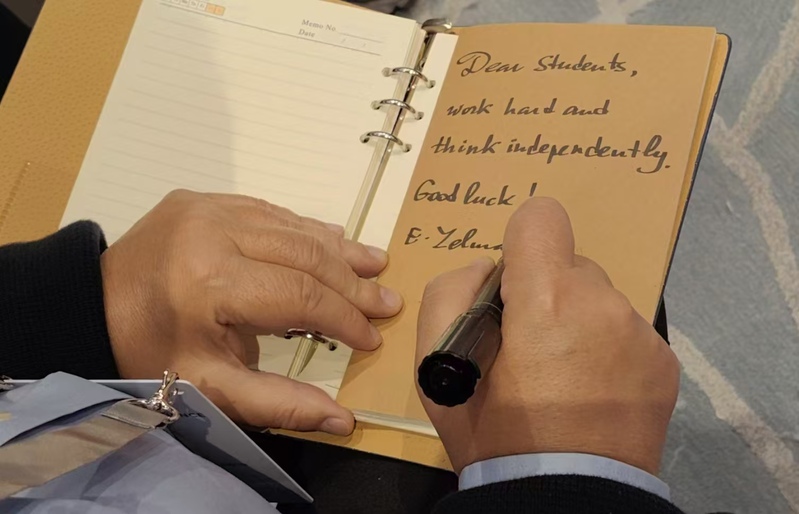 Memo No.
Date
Dear Students,
work hard and
think independently.
Good luck!
E. Zelma